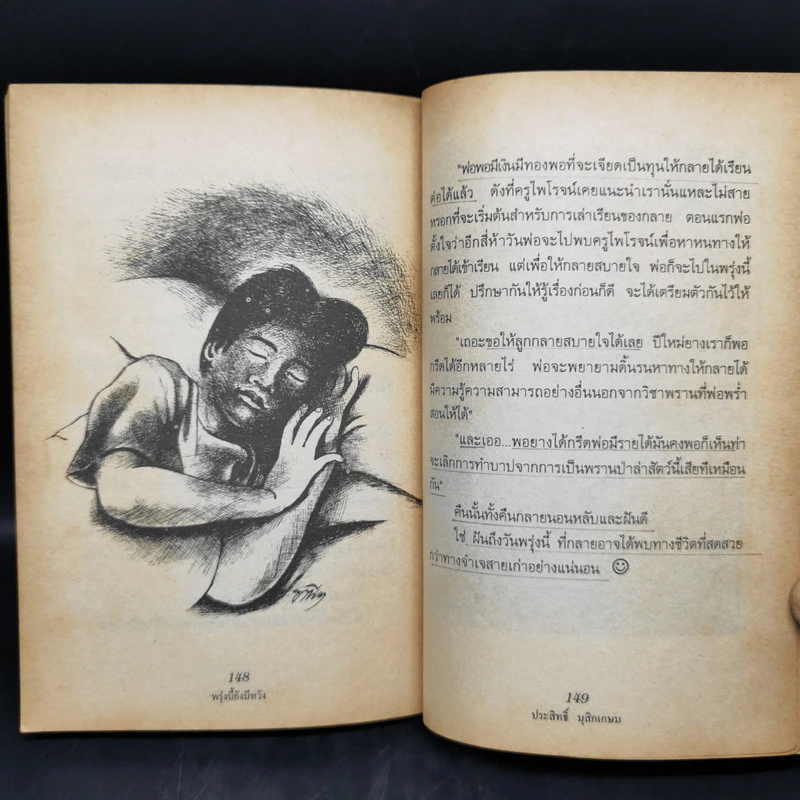 148
พรุ่งนี้ยังมีหวัง
"พ่อพอมีเงินมีทองพอที่จะเจียดเป็นทุนให้กลายได้เรียน
ต่อได้แล้ว ดังที่ครูไพโรจน์เคยแนะนำเรานั้นแหละไม่สาย
หรอกที่จะเริ่มต้นสำหรับการเล่าเรียนของกลาย ตอนแรกพ่อ
ตั้งใจว่าอีกสี่ห้าวันพ่อจะไปพบครูไพโรจน์เพื่อหาหนทางให้
กลายได้เข้าเรียน แต่เพื่อให้กลายสบายใจ พ่อก็จะไปในพรุ่งนี้
เลยก็ได้ ปรึกษากันให้รู้เรื่องก่อนก็ดี จะได้เตรียมตัวกันไว้ให้
พร้อม
"เถอะขอให้ลูกกลายสบายใจได้เลย ปีใหม่ยางเราก็พอ
กรีดได้อีกหลายไร่ พ่อจะพยายามดิ้นรนหาทางให้กลายได้
มีความรู้ความสามารถอย่างอื่นนอกจากวิชาพรานที่พ่อพร่ำ
สอนให้ได้"
"และเออ...พอยางได้กรีดพ่อมีรายได้มั่นคงพอก็เห็นท่า
จะเลิกการทำบาปจากการเป็นพรานป่าล่าสัตว์นี้เสียทีเหมือน
กัน"
คืนนั้นทั้งคืนกลายนอนหลับและฝันดี
ใช่ ฝันถึงวันพรุ่งนี้ ที่กลายอาจได้พบทางชีวิตที่สดสวย
กว่าทางจำเจสายเก่าอย่างแน่นอน ☺
149
ประสิทธิ์ มุสิกเกษม